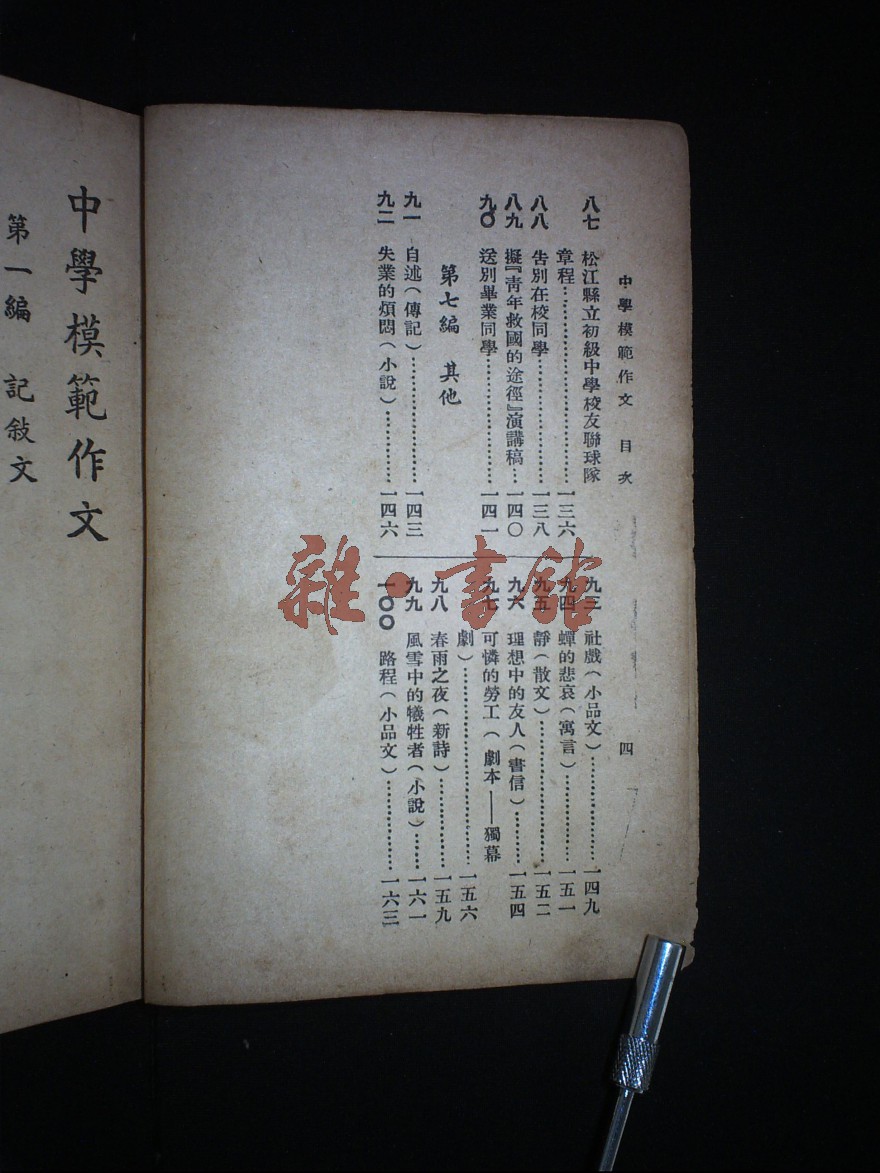 中學模範作文 目次 四
八七 松江縣立初級中學校友聯球隊
章程…………………………一三六
八八 告別在校同學………………一三八
八九 擬『青年救國的途徑』演講稿…一四〇
九〇 送別畢業同學………………一四一
第七編 其他
九一 自述(傳記)………………一四三
九二 失業的煩悶(小說)…………一四六
九三 社戲(小品文)………………一四九
九四 蟬的悲哀(寓言)……………一五一
九五 靜(散文)……………………一五二
九六 理想中的友人(書信)………一五四
九七 可憐的勞工(劇本——獨幕
劇)……………………………一五六
九八 春雨之夜(新詩)……………一五九
九九 風雪中的犧牲者(小說)……一六一
一〇〇 路程(小品文)……………一六三
中學模範作文
第一編 記敍文
雜·書館